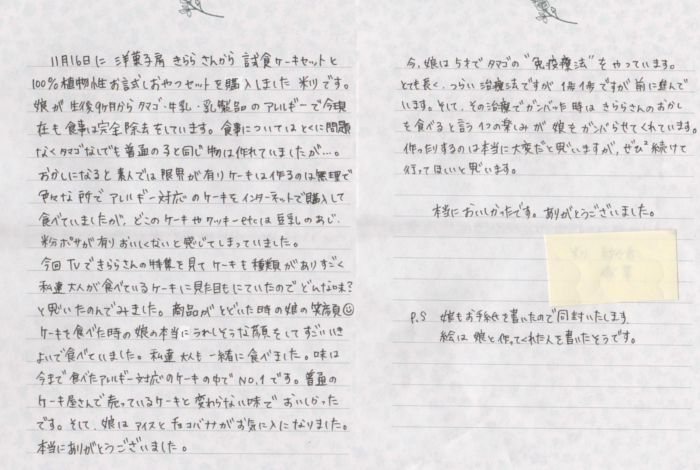 11月16日に 洋菓子房 きららさんから 試食ケーキセットと
100%植物性お試しおやつセットを購入しました 米川です。
娘が生後9ケ月から タマゴ・牛乳・乳製品のアレルギーで今現
在も食事は完全除去をしています。食事についてはとくに問題
なくタマゴなしでも普通の子と同じ物は作れていましたが…。
おかしになると素人では限界が有りケーキは作るのは無理で
色々な所でアレルギー対応のケーキをインターネットで購入して
食べていましたが、どこのケーキやクッキーetcは豆乳のあじ・
粉ボサが有りおいしくないと感じてしまっていました。
今回TVできららさんの特集を見てケーキも種類がありすごく
私達大人が食べているケーキに見た目もにていたのでどんな味?
と思いたのんでみました。商品がとどいた時の娘の笑顔
ケーキを食べた時の娘の本当にうれしそうな顔をしてすごいいき
よいで食べていました。私達大人も一緒に食べました。味は
今まで食べたアレルギー対応のケーキの中でNO.1です。普通の
ケーキ屋さんで売っているケーキと変わらない味でおいしかった
です。そして、娘はアイスとチョコバナナがお気に入になりました。
本当にありがとうございました。
今、娘は5才でタマゴの"免疫療法"をやっています。
とても長く、つらい治療法ですが1歩1歩ですが前に進んで
います。そして、その治療でガンバッた時はきららさんのおかし
を食べると言う1つの楽しみが娘をガンバらせてくれています。
作ったりするのは本当に大変だと思いますが、ぜひ続けて
行ってほしいと思います。
本当においしかったです。ありがとうございました。
P.S 娘もお手紙を書いたので同封いたします
絵は娘と作ってくれた人を書いたそうです。